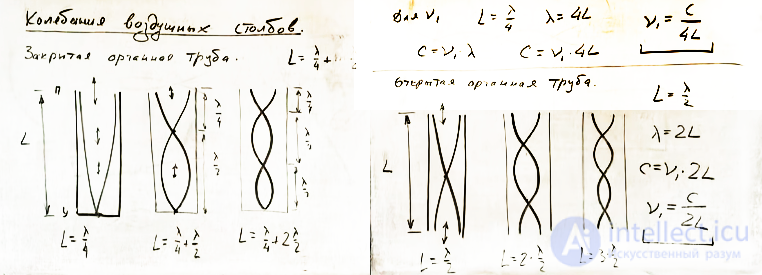 Колебания воздушных столбов.
Закрытая органная труба.
L = λ/4 +
П
λ/4
λ/2
λ/4
λ/2
λ/2
L
У
L = λ/4
L = λ/4 + λ/2
L = λ/4 + 2 λ/2
Для ν₁ L = λ/4 λ = 4L ν₁ = C/4L
C = ν₁ λ C = ν₁ · 4L
Открытая органная труба.
L = λ/2
λ = 2L
C = ν₁ · 2L
ν₁ = C/2L
L
L = λ/2
L = 2 · λ/2
L = 3 λ/2
intellect.icu
искусственный разум